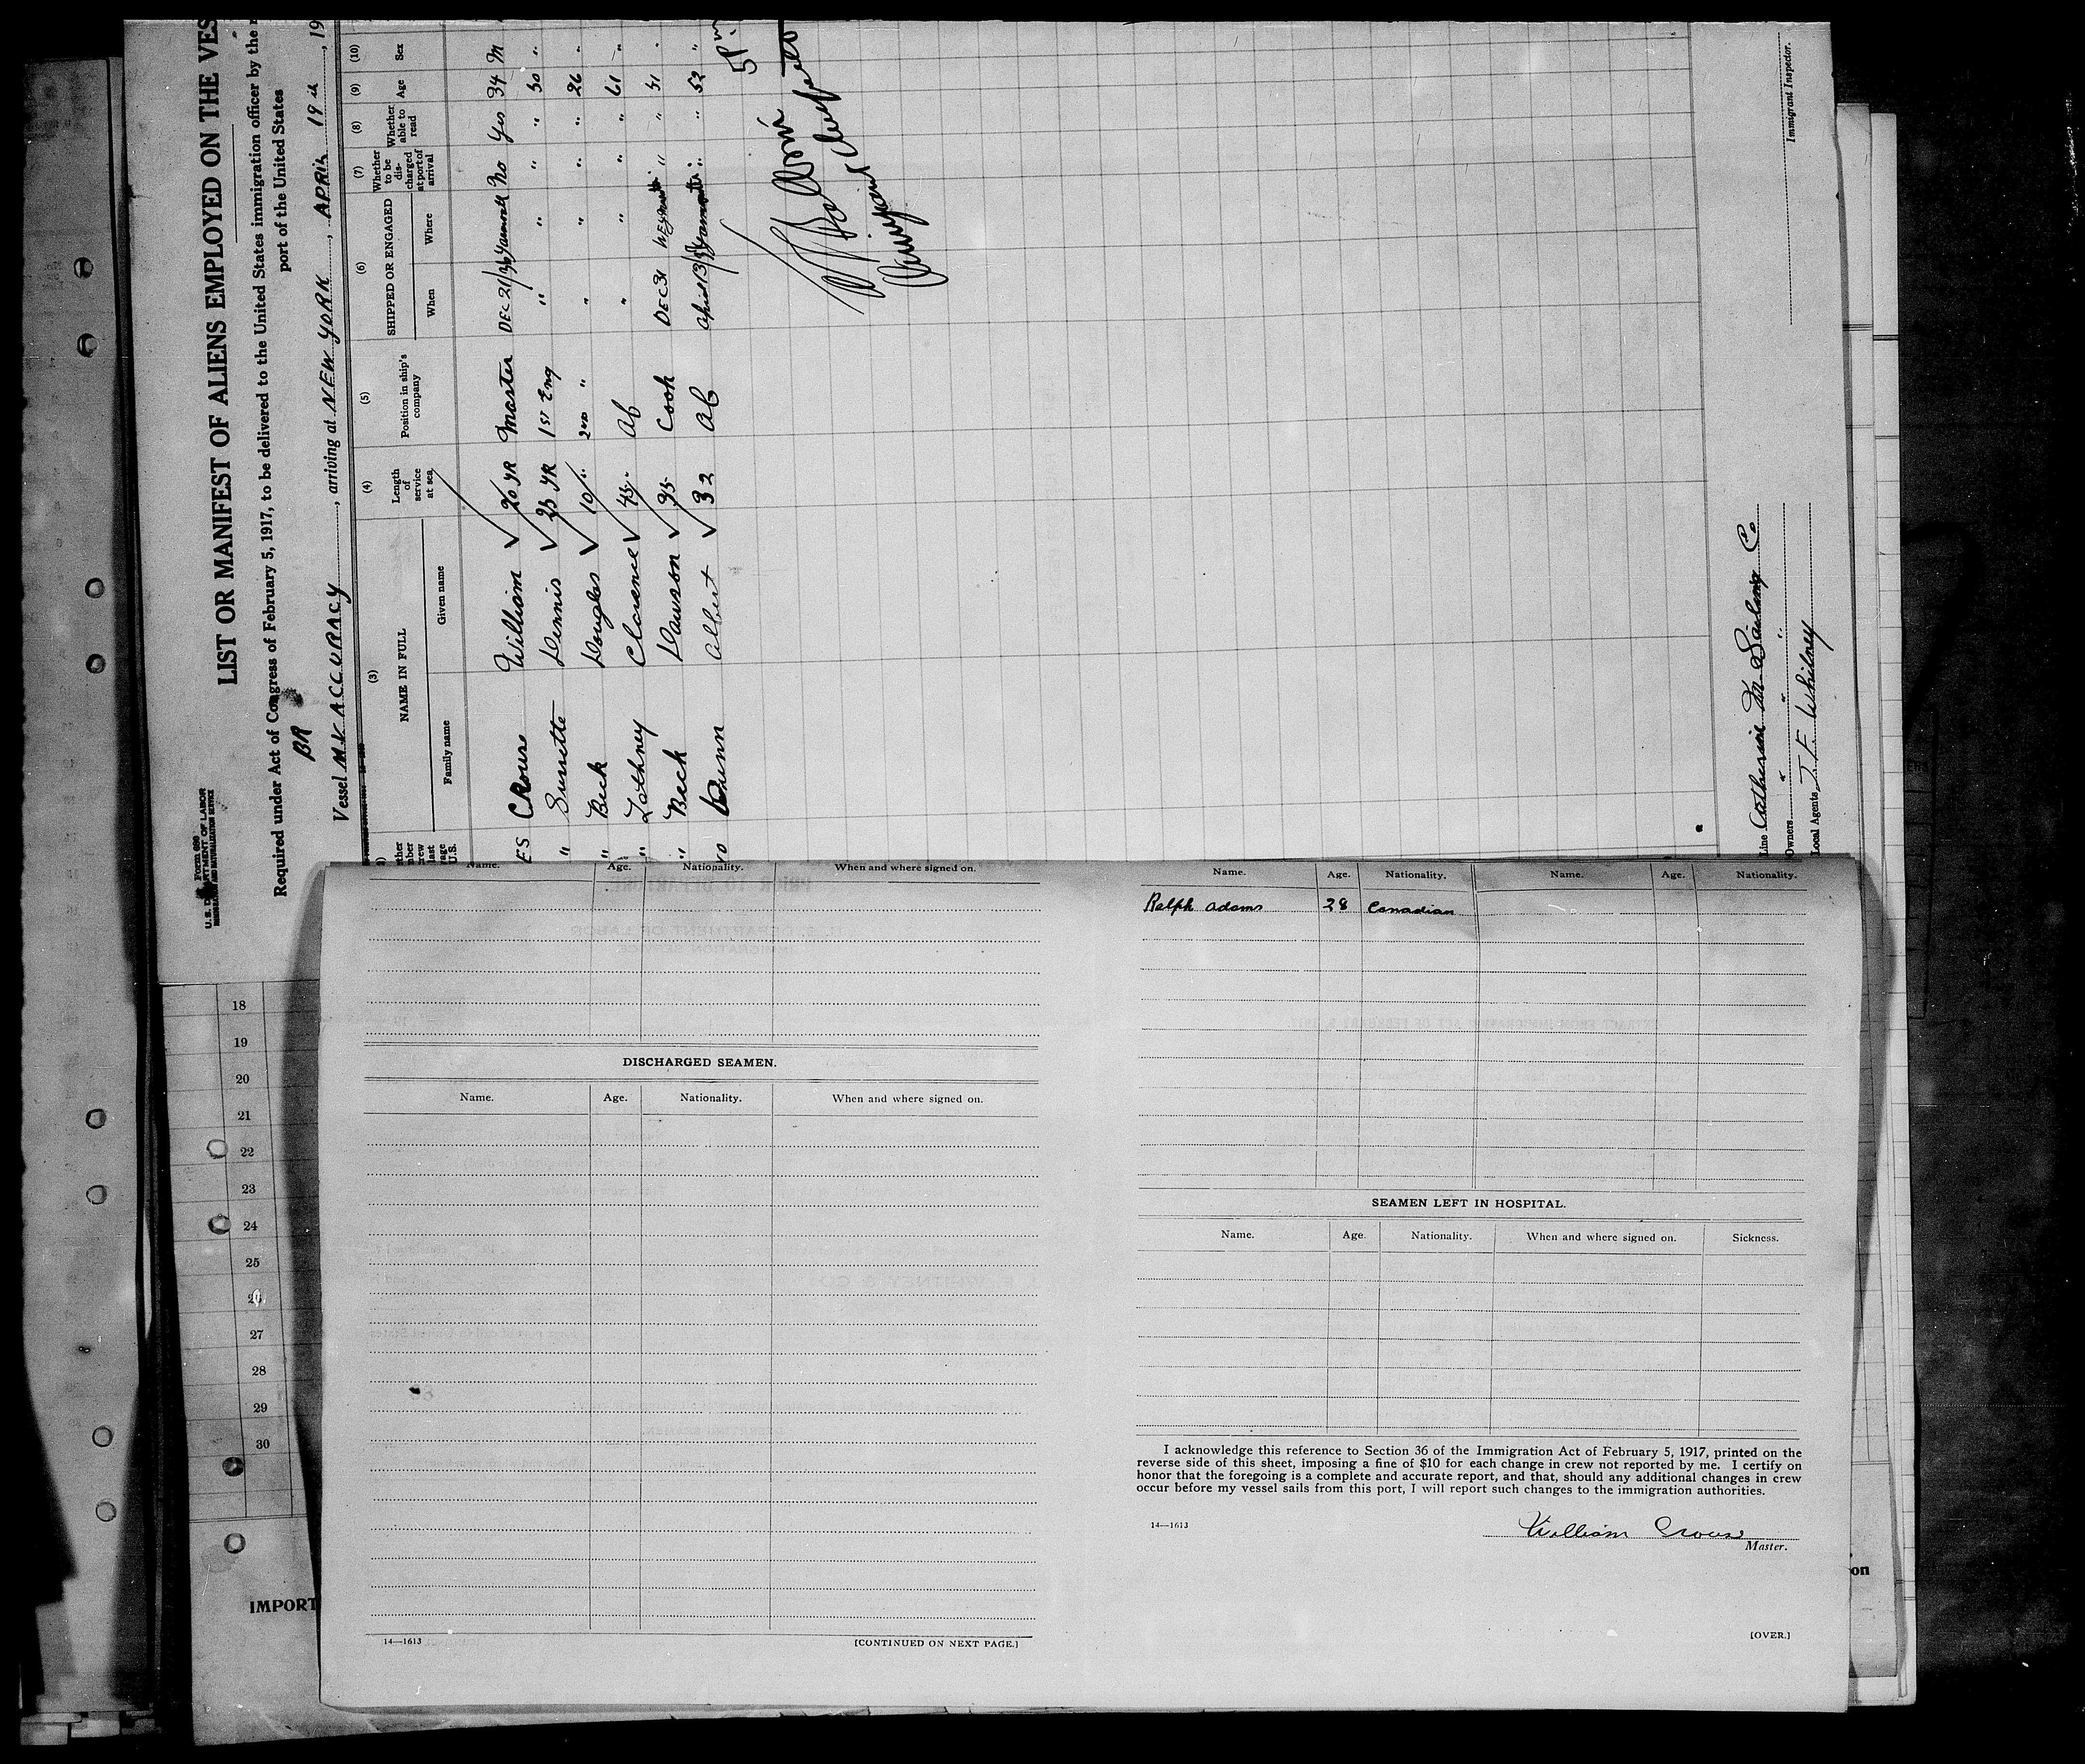 Form 689
U.S. DEPARTMENT OF LABOR
IMMIGRATION AND NATURALIZATION SERVICE
LIST OR MANIFEST OF ALIENS EMPLOYED ON THE VES
Required under Act of Congress of February 5, 1917, to be delivered to the United States immigration officer by the
port of the United States
BR
Vessel M.V. ACCURACY, arriving at NEW YORK, APRIL 19th, 19
(3) (4) (5) (6) (7) (8) (9) (10)
NAME IN FULL
Family name Given name
Length of service at sea
Position in ship's company
SHIPPED OR ENGAGED
When Where
Whether to be discharged at port of arrival
Whether able to read
Age Sex
ES Crouse William 20 YR Master DEC 21/36 Yarmouth No Yes 34 M
" Surrette Dennis 23 YR 1ST Eng " " " " 30 "
" Beck Douglas 10 " 2ND " " " " " 26 "
" Lothney Clarence 45 " Ab " " " " 61 "
" Beck Dawson 35 " Cook DEC 31 " " 51 "
Dunn Albert 32 Ab April 13/ Yarmouth " " 52 "
5 P.m
Line Catherine M Sailing Co
Owners " " "
Local Agents J. F. Whitney
Immigrant Inspector.
18
19
20
21
22
23
24
25
26
27
28
29
30
IMPORT
Name. Age. Nationality. When and where signed on.
DISCHARGED SEAMEN.
Name. Age. Nationality. When and where signed on.
14—1613 [CONTINUED ON NEXT PAGE.]
Name. Age. Nationality. Name. Age. Nationality.
Ralph Adams 28 Canadian
SEAMEN LEFT IN HOSPITAL.
Name. Age. Nationality. When and where signed on. Sickness.
I acknowledge this reference to Section 36 of the Immigration Act of February 5, 1917, printed on the
reverse side of this sheet, imposing a fine of $10 for each change in crew not reported by me. I certify on
honor that the foregoing is a complete and accurate report, and that, should any additional changes in crew
occur before my vessel sails from this port, I will report such changes to the immigration authorities.
14—1613
William Crouse
Master.
[OVER.]
on